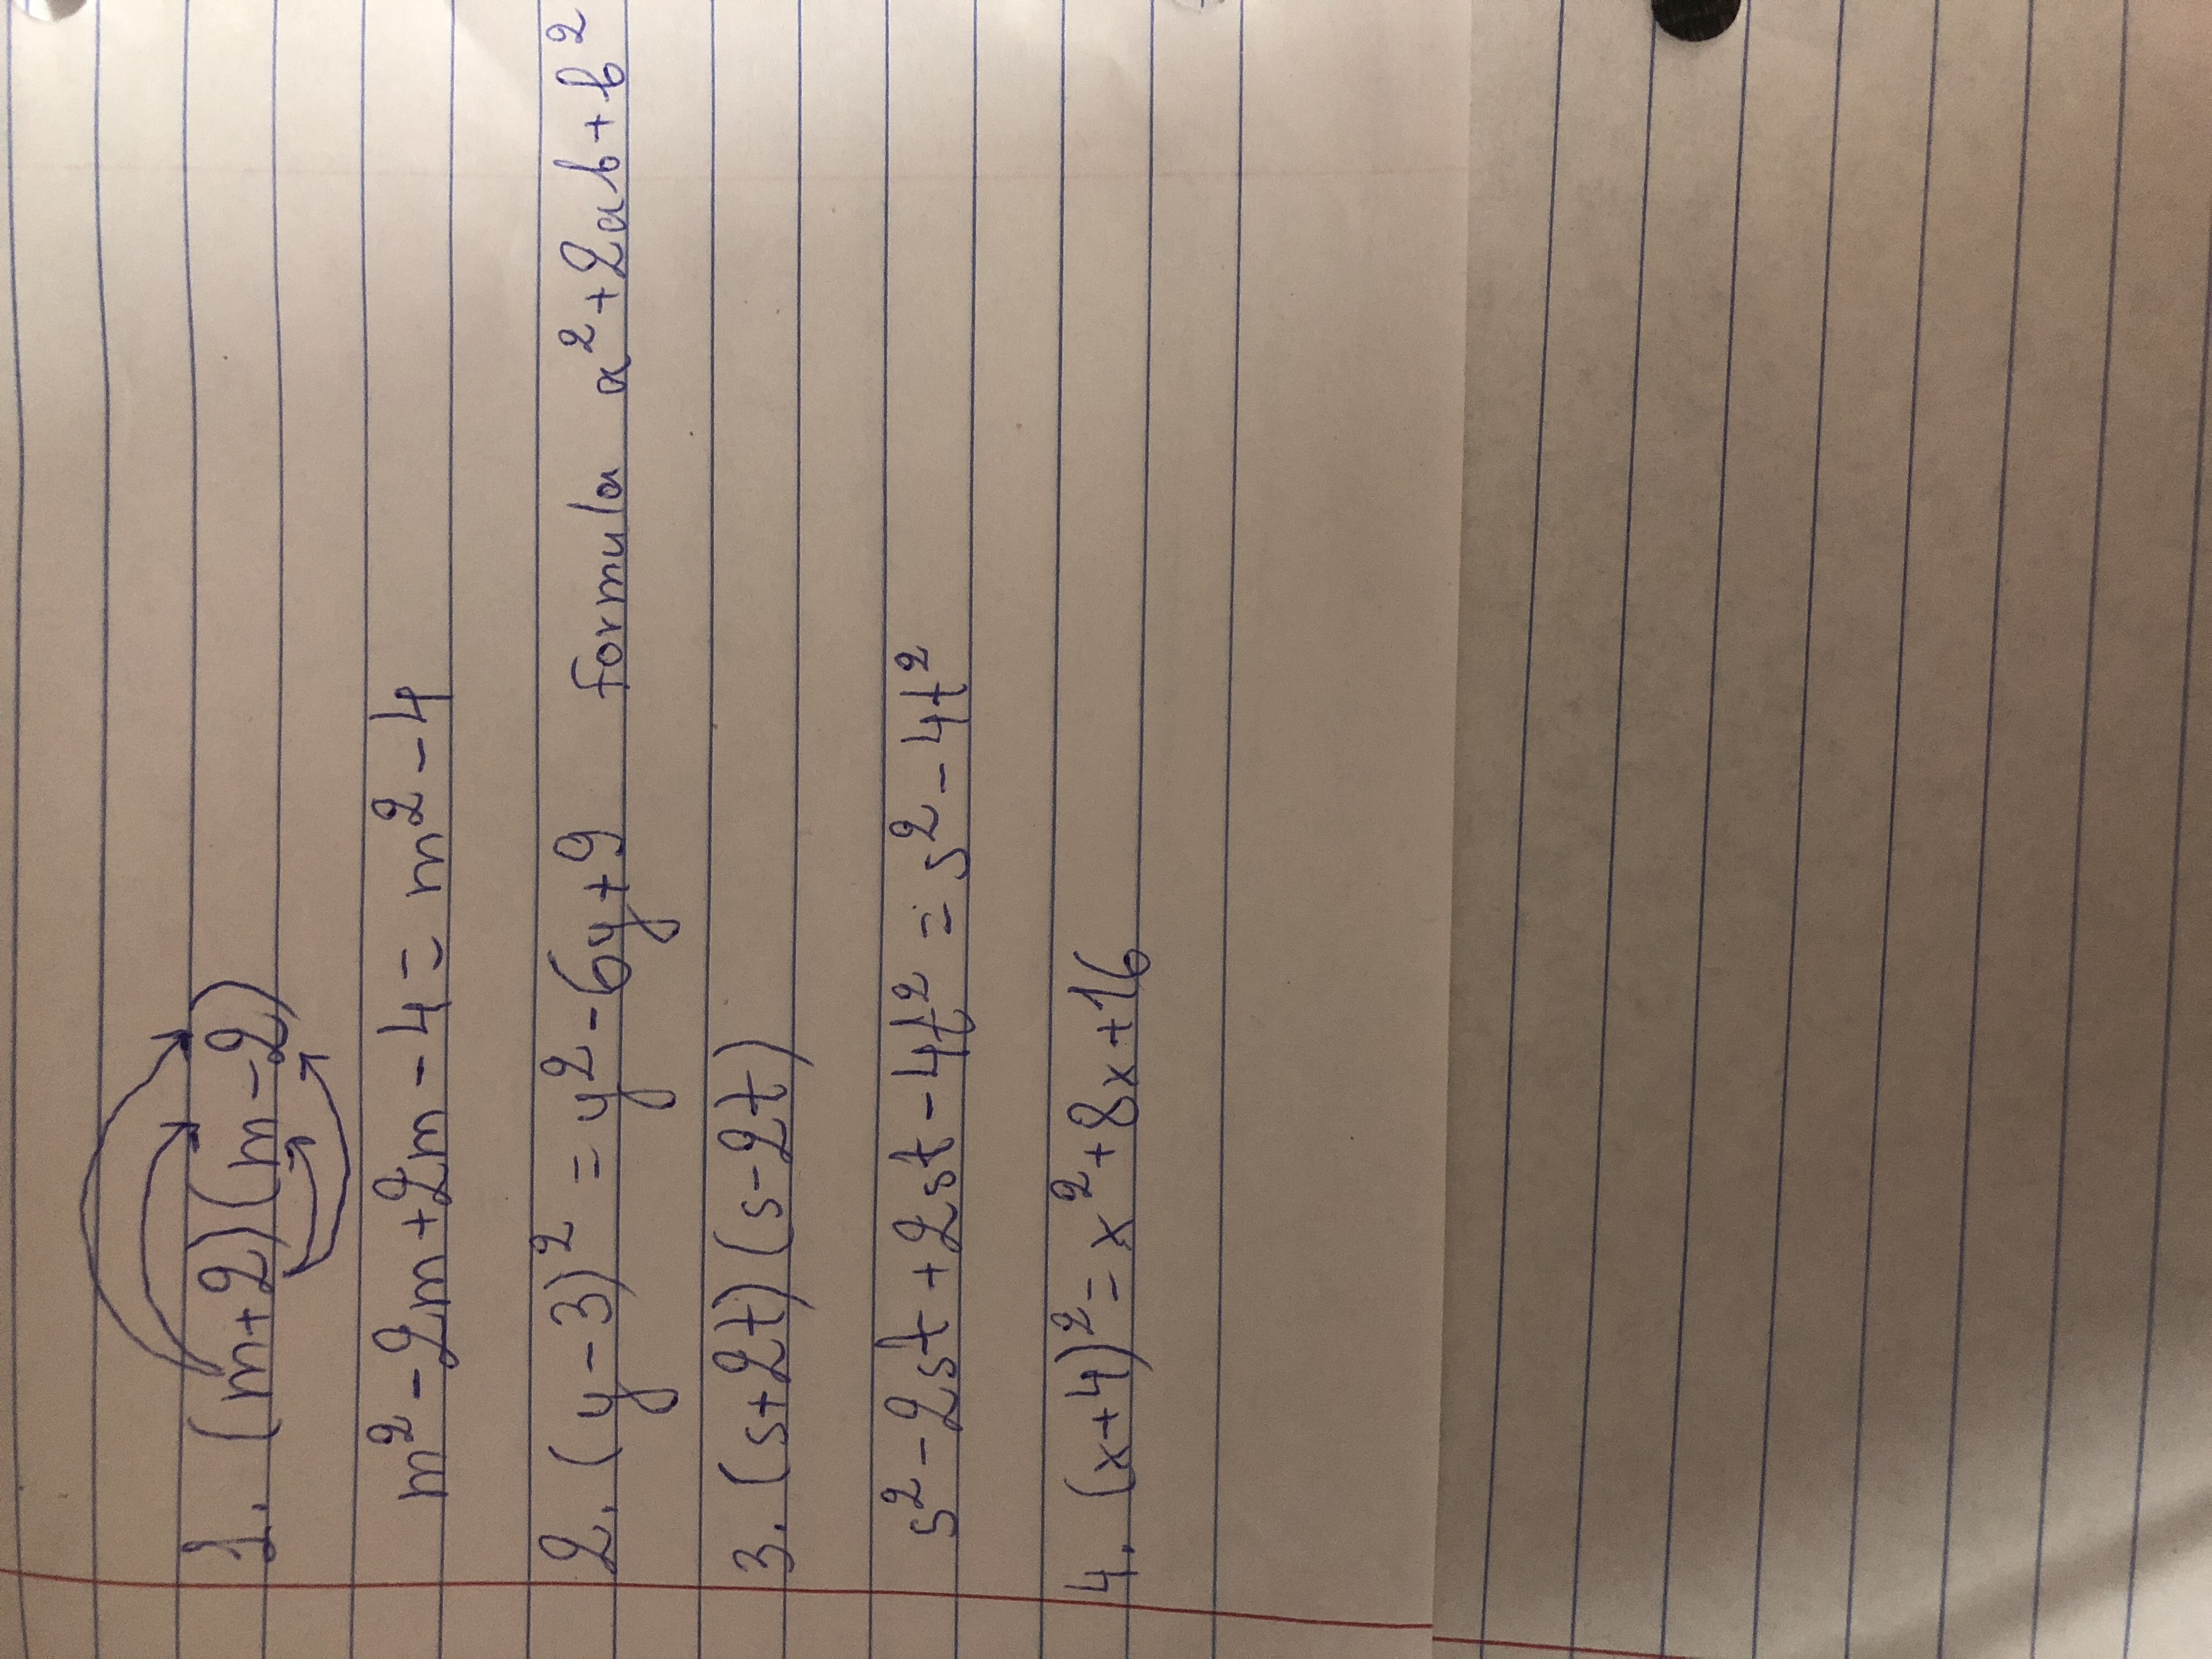 1. (m+2)(m-2)
m²-2m+2m-4= m²-4
2. (y-3)² = y²-6y+9 formula a²+2ab+b²
3. (s+2t)(s-2t)
s²-2st+2st-4t² = s²-4t²
4. (x+4)²= x²+8x+16